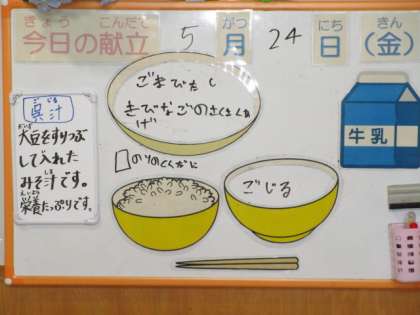 きょう こんだて がつ にち きん
今日の献立 5月24日(金)
ごまびたし
きびなごのさくさくあ
げ
のりのつくだに
ごじる
牛乳
ごじる
呉汁
だいず
大豆をすりつぶ
して入れた
みそ汁です。
えいよう
栄養たっぷりです。